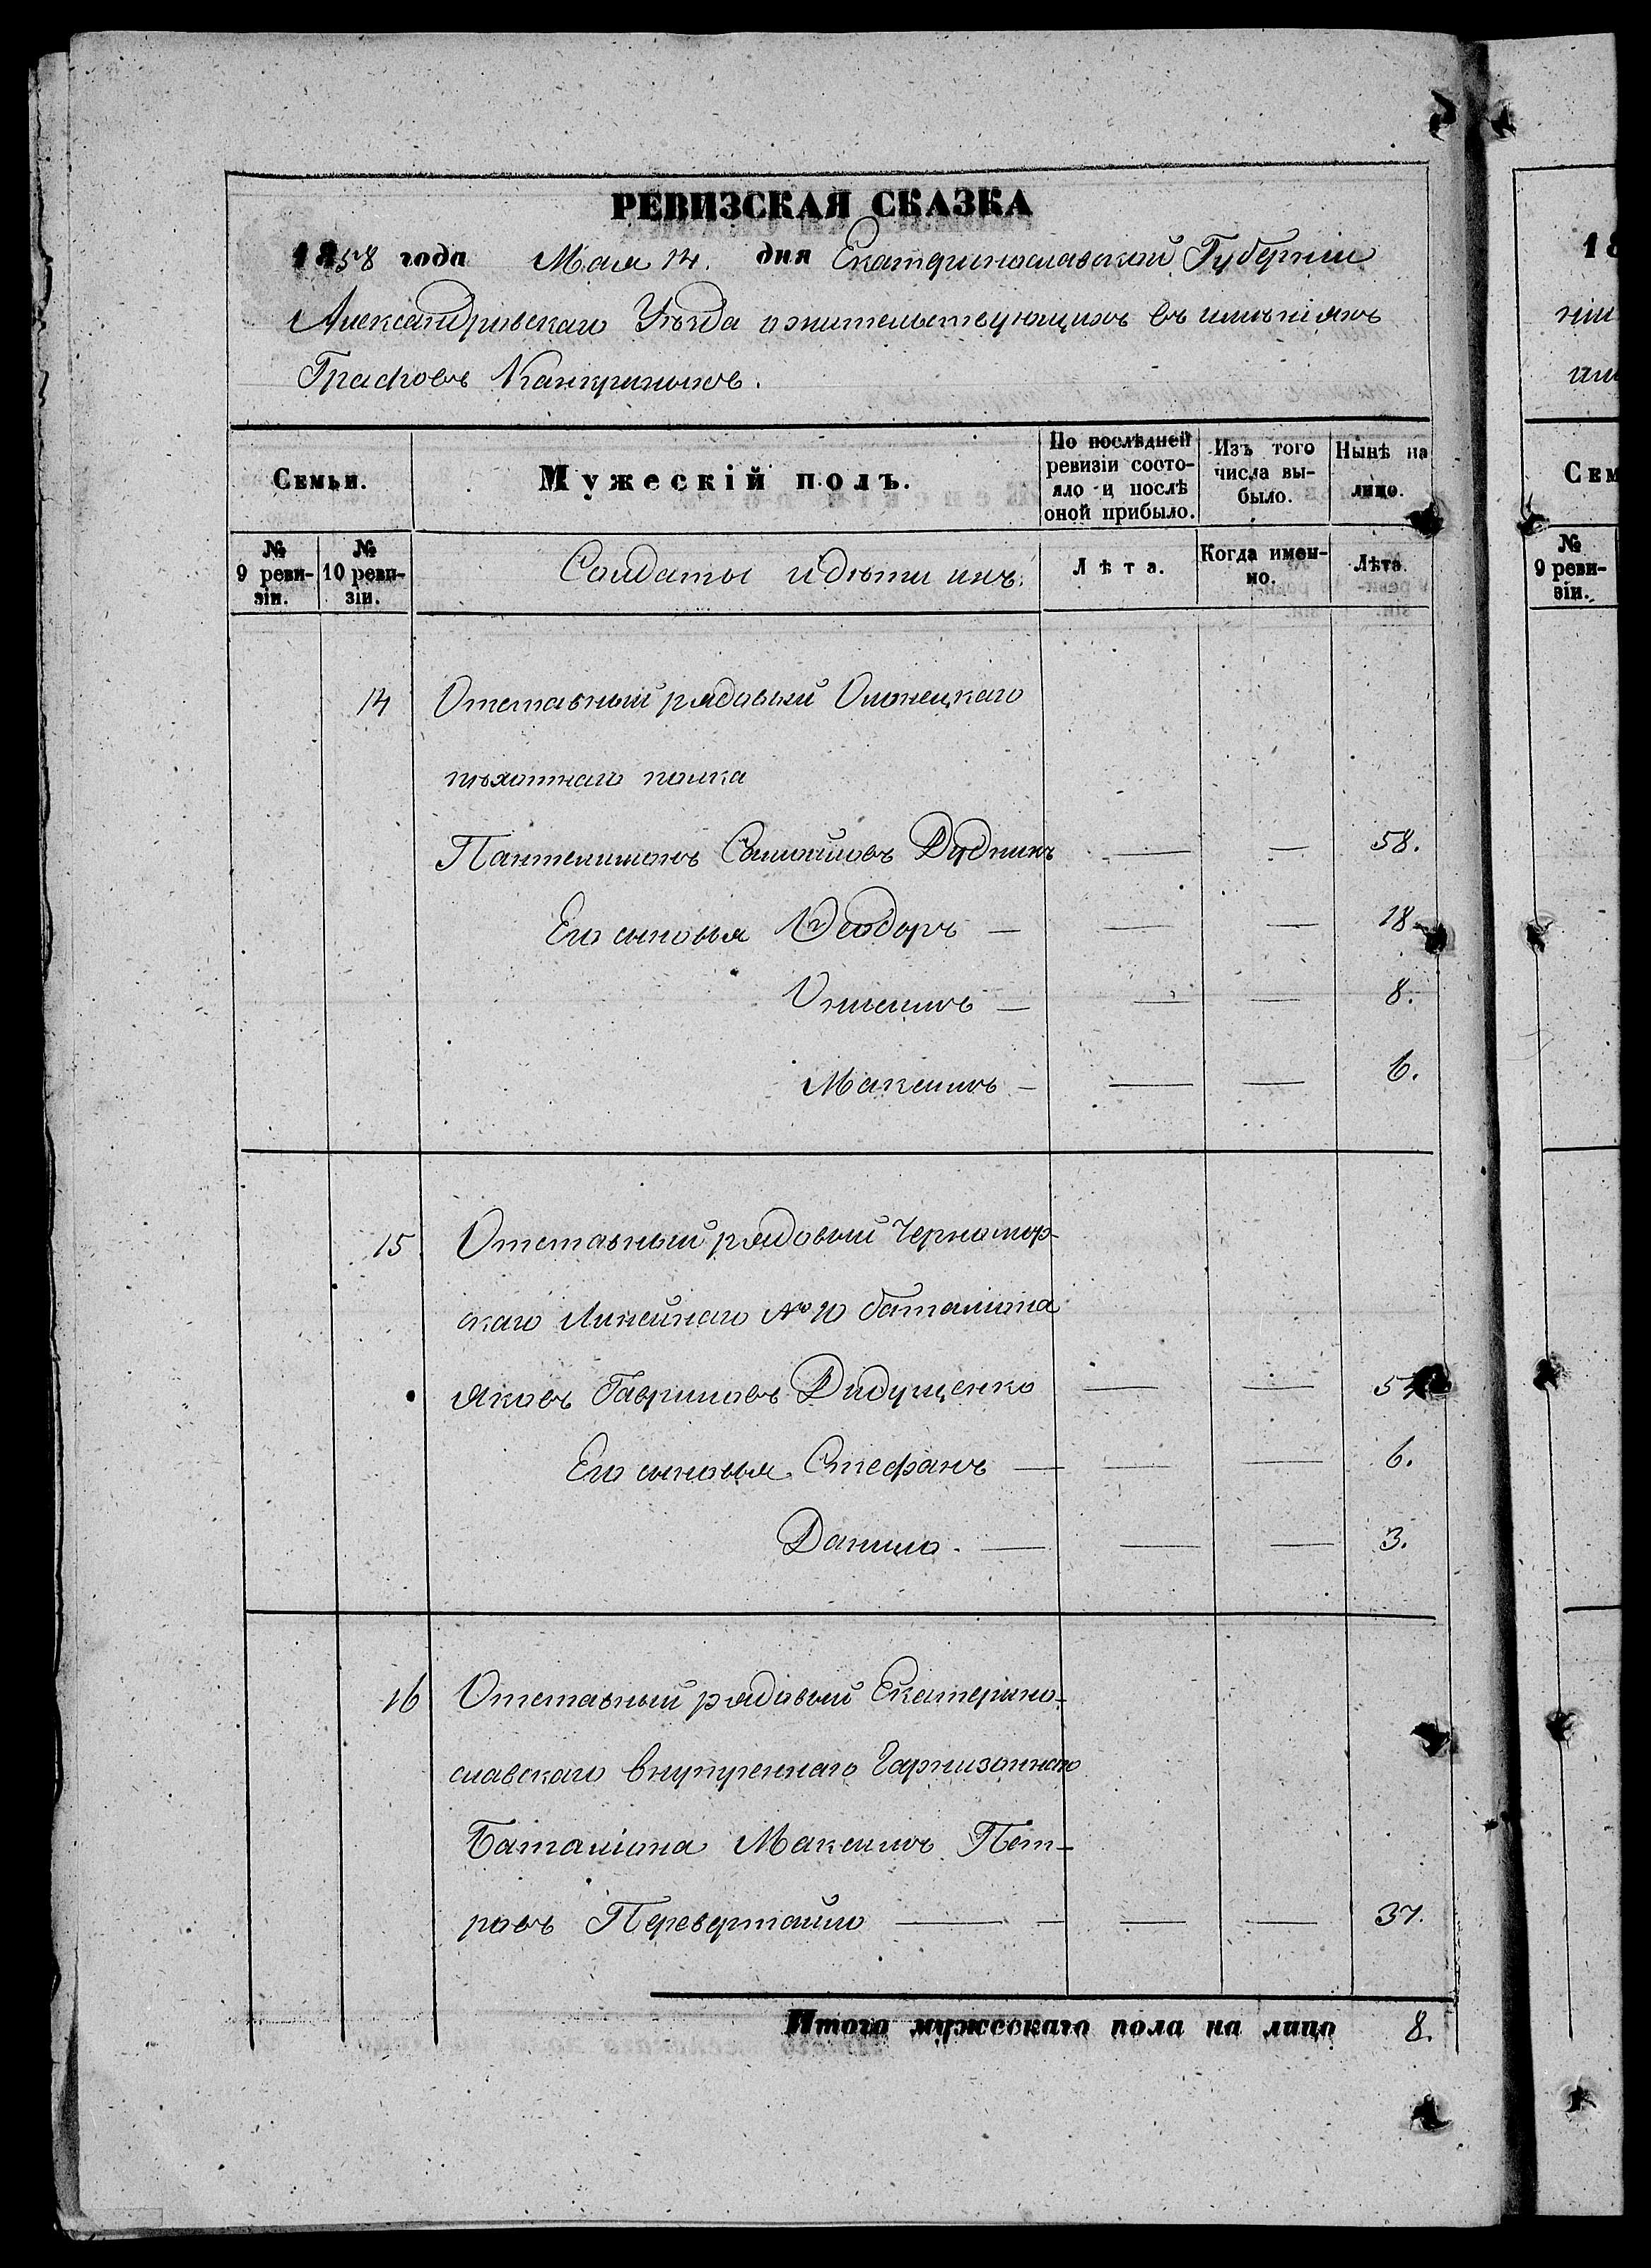 РЕВИЗСКАЯ СКАЗКА
1858 года Мая 14. дня Екатеринославской Губерніи
Александровскаго Уѣзда о жительствующихъ въ имѣніяхъ
Графовъ Канкриныхъ.
Семьи. Мужескій полъ. По послѣдней ревизіи состояло и послѣ оной прибыло. Изъ того числа выбыло. Нынѣ на лицо.
№ 9 ревизіи. № 10 ревизіи. Солдаты и дѣти ихъ. Лѣта. Когда именно. Лѣта.
14 Отставный рядовый Олонецкаго
пѣхотнаго полка
Пантелимонъ Самойловъ Дудникъ — — 58.
Его сыновья Феодоръ — — — 18.
Онисимъ — — — 8.
Максимъ — — — 6.
15 Отставный рядовый Черномор-
скаго Линейнаго № 10 баталіона
Яковъ Гавриловъ Дидущенко — —
Его сыновья Стефанъ — — — 6.
Данило. — — — 3.
16 Отставный рядовый Екатерино-
славскаго Внутренняго Гарнизоннаго
Баталіона Максимъ Пет-
ровъ Перевертайло — — — 37.
Итого мужескаго пола на лицо 8.
18
ніи
Сем
№
9 реви-
зіи.